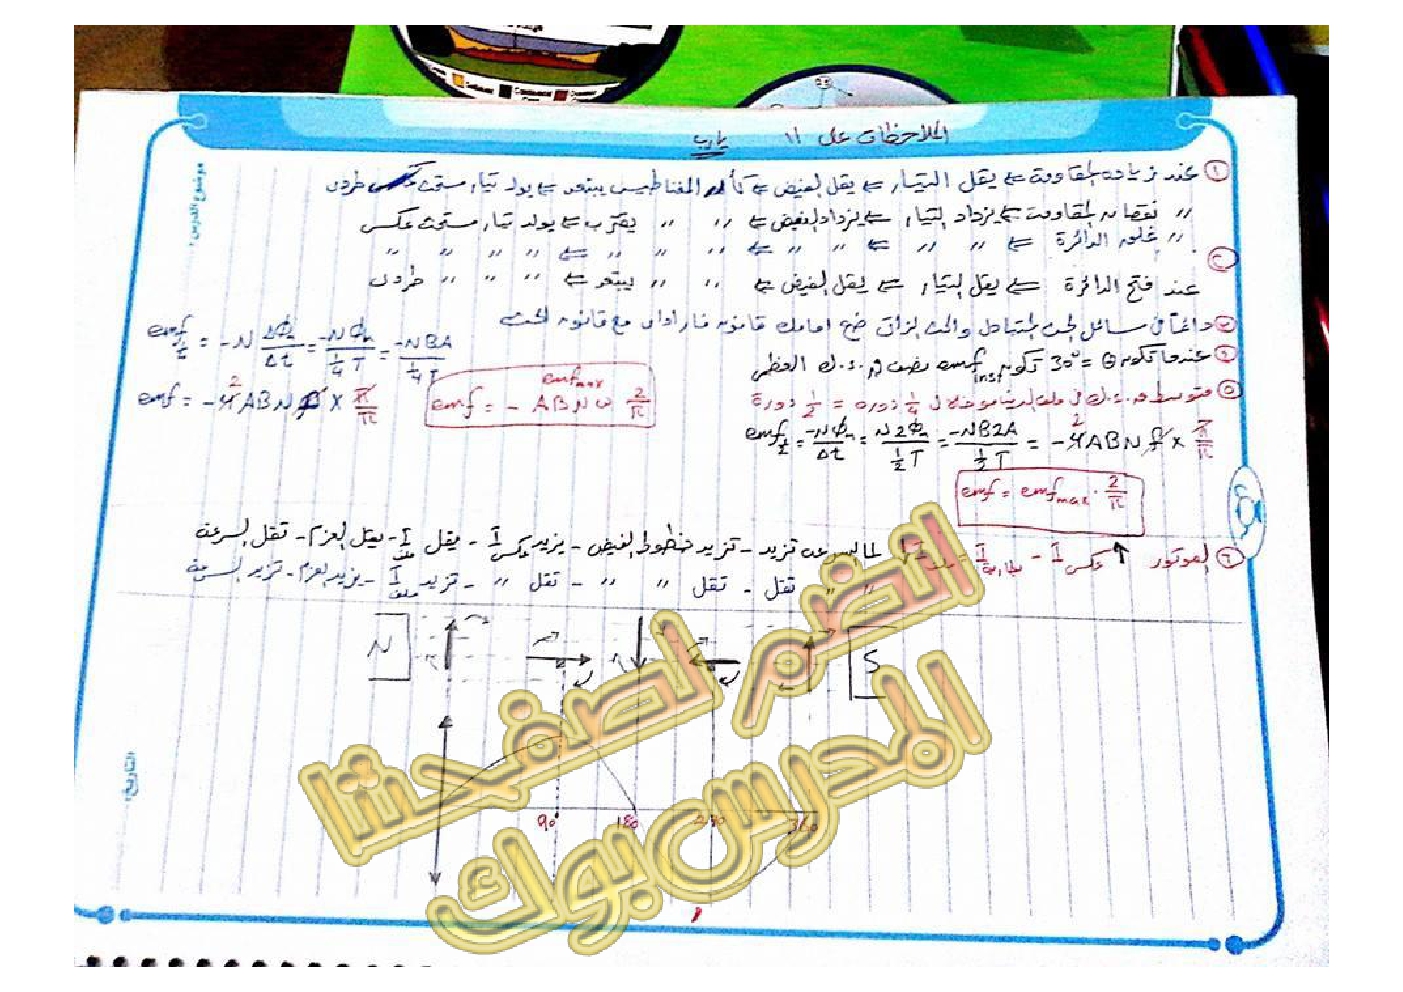 الملاحظات على ١١ يارب
موضوع الدرس :
① عند زيادة المقاومة ⇐ يقل التيار ⇐ يقل الفيض ⇐ كأن المغناطيس يبتعد ⇐ يولد تيار مستحث طردى
〃 نقصان المقاومة ⇐ يزداد التيار ⇐ يزداد الفيض ⇐ 〃 〃 يقترب ⇐ يولد تيار مستحث عكسى
② 〃 غلق الدائرة ⇐ 〃 〃 ⇐ 〃 〃 ⇐ 〃 〃 〃 ⇐ 〃 〃 〃 〃
عند فتح الدائرة ⇐ يقل التيار ⇐ يقل الفيض ⇐ 〃 〃 يبتعد ⇐ 〃 〃 〃 طردى
③ دائماً فى مسائل الحث المتبادل والحث الذاتى ضع امامك قانون فاراداى مع قانون الحث
④ عندما تكون θ = 30° تكون emf inst نصف ق.د.ك العظمى
⑤ متوسط ق.د.ك فى ملف الدينامو خلال 1/4 دورة = 1/2 دورة
emf = -N Δφm/Δt = -Nφm / 1/4 T = -NBA / 1/4 T
emf = -4 2 ABN f × π/π
emf max
emf = - ABNω 2/π
emf = -Nφm/Δt = N2φm / 1/2 T = -NB2A / 1/2 T = -4 2 ABN f × π/π
emf = emf max . 2/π
⑥ الموتور I عكسى - I بطارية = I ملف لما السرعة تزيد - تزيد خطوط الفيض - يزيد I عكسى - يقل I ملف - يقل العزم - تقل السرعة
〃 〃 تقل - تقل 〃 〃 - تقل 〃 - تزيد I ملف - يزيد العزم - تزيد السرعة
N S
90 180 270 360
التاريخ :
انضم لصفحتنا
المدرس بوك